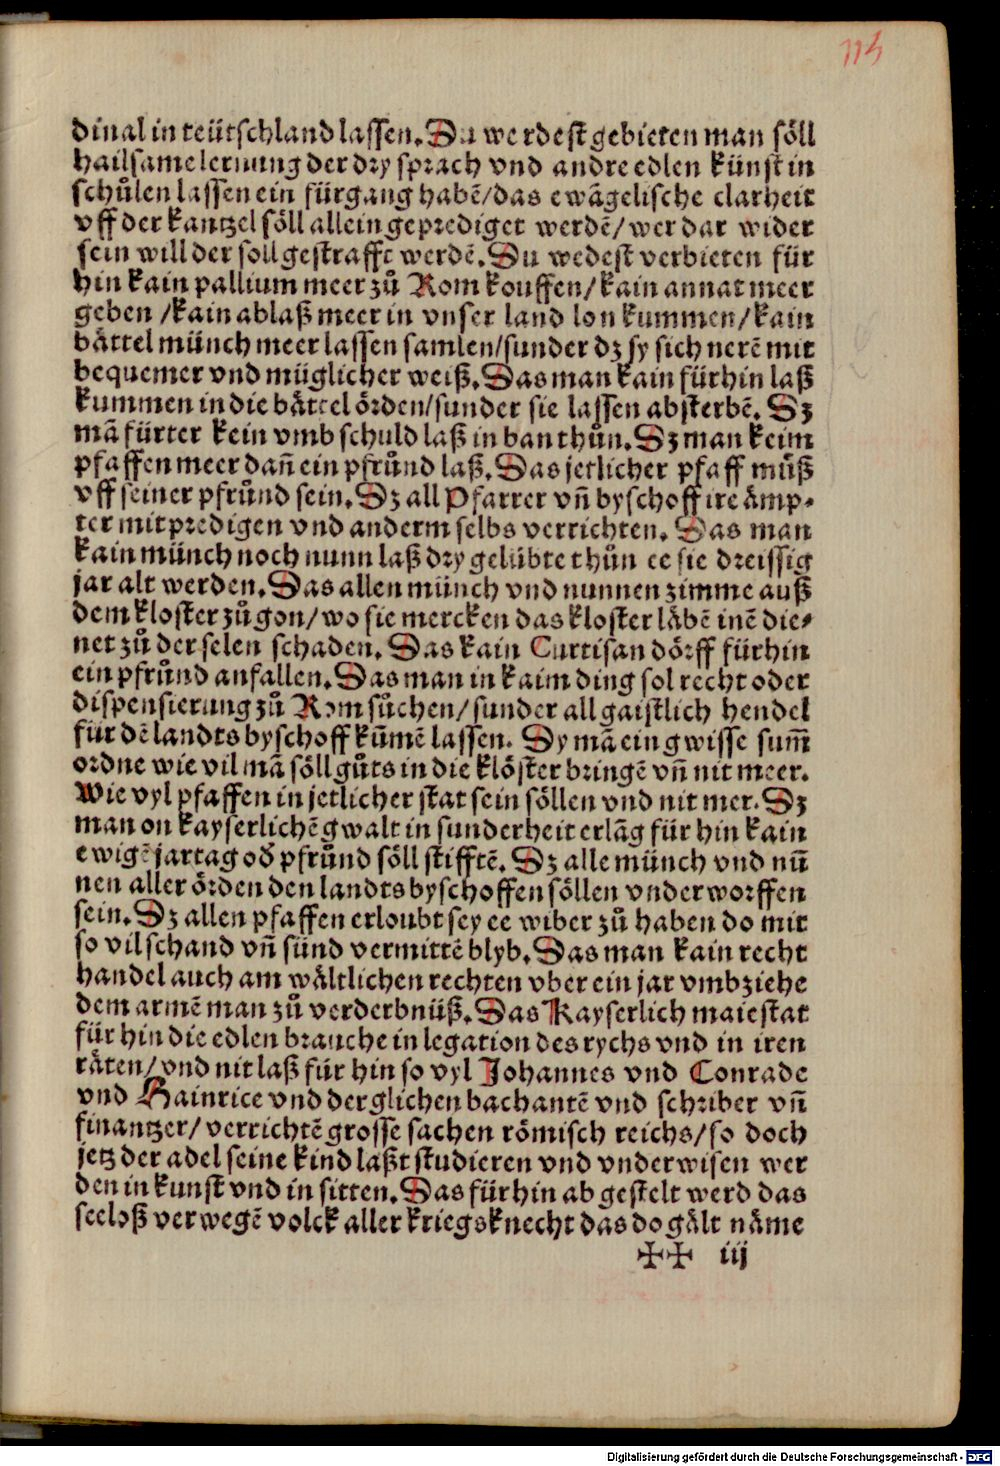 115
dinal in teütschland lassen. Du werdest gebieten man söll
hailsame lernung der dry sprach vnd andre edlen künst in
schůlen lassen ein fürgang habē/das ewāgelische clarheit
vff der kantzel söll allein geprediget werdē/wer dar wider
sein will der soll gestrafft werdē. Du wedest verbieten für
hin kain pallium meer zů Rom kouffen/kain annat meer
geben /kain ablaß meer in vnser land lon kummen/kain
bättel münch meer lassen samlen/sunder dz sy sich nerē mit
bequemer vnd müglicher weiß. Das man kain fürhin laß
kummen in die bättel örden/sunder sie lassen absterbē. Dz
mā fürter kein vmb schuld laß in ban thůn. Dz man keim
pfaffen meer dañ ein pfrůnd laß. Das jetlicher pfaff můß
vff seiner pfrůnd sein. Dz all Pfarrer vñ byschoff ire ämp⸗
ter mit predigen vnd anderm selbs verrichten. Das man
kain münch noch nunn laß dry gelübte thůn ee sie dreissig
jar alt werden. Das allen münch vnd nunnen zimme auß
dem kloster zů gon/wo sie mercken das kloster läbē inē die⸗
net zů der selen schaden. Das kain Curtisan dörff fürhin
ein pfrůnd anfallen. Das man in kaim ding sol recht oder
dispensierung zů Rom sůchen/sunder all gaistlich hendel
für dē landts byschoff kūmē lassen. Dy mā ein gwisse sum̄
ordne wie vil mā söll gůts in die klöster bringē vñ nit meer.
Wie vyl pfaffen in jetlicher stat sein söllen vnd nit mer. Dz
man on kayserlichē gwalt in sunderheit erlāg für hin kain
ewigē jartag od̓ pfrůnd söll stifftē. Dz alle münch vnd nū
nen aller örden den landts byschoffen söllen vnderworffen
sein. Dz allen pfaffen erloubt sey ee wiber zů haben do mit
so vil schand vñ sünd vermittē blyb. Das man kain recht
handel auch am wältlichen rechten vber ein jar vmbziehe
dem armē man zů verderbnüß. Das Kayserlich maiestat
für hin die edlen brauche in legation des rychs vnd in iren
räten/vnd nit laß für hin so vyl Johannes vnd Conrade
vnd Hainrice vnd derglichen bachantē vnd schriber vñ
finantzer/verrichtē grosse sachen römisch reichs/so doch
jetz der adel seine kind laßt studieren vnd vnderwisen wer
den in kunst vnd in sitten. Das fürhin ab gestelt werd das
seeloß verwegē volck aller kriegsknecht das do gält näme
✠✠ iij
Digitalisierung gefördert durch die Deutsche Forschungsgemeinschaft - DFG